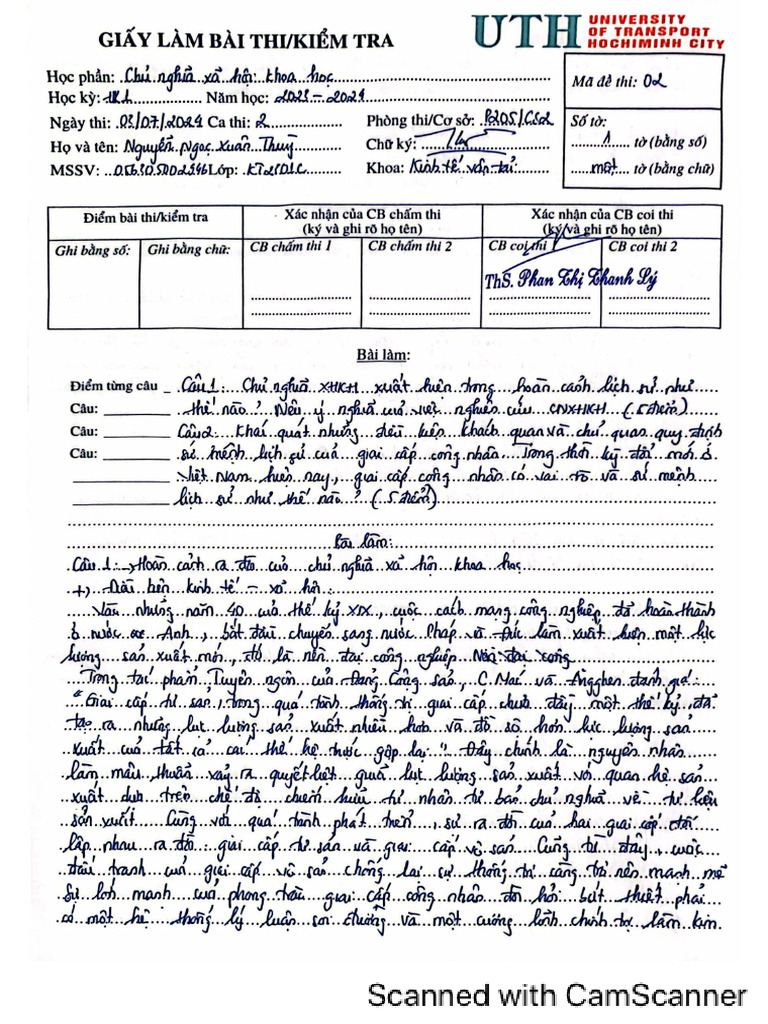 GIẤY LÀM BÀI THI/KIỂM TRA
UTH UNIVERSITY OF TRANSPORT HOCHIMINH CITY
Học phần: Chủ nghĩa xã hội khoa học
Học kỳ: HK1 Năm học: 2023 - 2024
Mã đề thi: 02
Ngày thi: 03/07/2024 Ca thi: 2 Phòng thi/Cơ sở: P205/CS2
Số tờ:
Họ và tên: Nguyễn Ngọc Xuân Thuỳ Chữ ký:
1 tờ (bằng số)
MSSV: Lớp: Khoa: Kinh tế vận tải
một tờ (bằng chữ)
Điểm bài thi/kiểm tra
Xác nhận của CB chấm thi (ký và ghi rõ họ tên)
Xác nhận của CB coi thi (ký và ghi rõ họ tên)
Ghi bằng số: Ghi bằng chữ: CB chấm thi 1 CB chấm thi 2 CB coi thi 1 CB coi thi 2
ThS. Phan Thị Thanh Lý
Bài làm:
Điểm từng câu Câu 1: Chủ nghĩa XHKH xuất hiện trong hoàn cảnh lịch sử như
Câu: thế nào? Nêu ý nghĩa của việc nghiên cứu CNXHKH (5 điểm)
Câu: Câu 2: Khái quát những điều kiện khách quan và chủ quan quy định
Câu: sứ mệnh lịch sử của giai cấp công nhân. Trong thời kỳ đổi mới ở
Việt Nam hiện nay, giai cấp công nhân có vai trò và sứ mệnh
lịch sử như thế nào? (5 điểm)
Bài làm:
Câu 1: → Hoàn cảnh ra đời của chủ nghĩa xã hội khoa học
+) Điều kiện kinh tế - xã hội:
Vào những năm 40 của thế kỷ XIX, cuộc cách mạng công nghiệp đã hoàn thành
ở nước Anh, bắt đầu chuyển sang nước Pháp và Đức làm xuất hiện một lực
lượng sản xuất mới, đó là nền đại công nghiệp
Trong tác phẩm "Tuyên ngôn của Đảng Cộng sản", C.Mác và Ăngghen đánh giá:
"Giai cấp tư sản, trong quá trình thống trị giai cấp chưa đầy một thế kỷ, đã
tạo ra những lực lượng sản xuất nhiều hơn và đồ sộ hơn lực lượng sản
xuất của tất cả các thế hệ trước gộp lại". Đây chính là nguyên nhân
làm mâu thuẫn xảy ra quyết liệt giữa lực lượng sản xuất với quan hệ sản
xuất dựa trên chế độ chiếm hữu tư nhân tư bản chủ nghĩa về tư liệu
sản xuất. Cùng với quá trình phát triển, sự ra đời của hai giai cấp đối
lập nhau ra đời: giai cấp tư sản và giai cấp vô sản. Cũng từ đây, cuộc
đấu tranh của giai cấp vô sản chống lại sự thống trị càng trở nên mạnh mẽ
Sự lớn mạnh của phong trào giai cấp công nhân đòi hỏi bức thiết phải
có một hệ thống lý luận soi đường và một cương lĩnh chính trị làm kim
Scanned with CamScanner